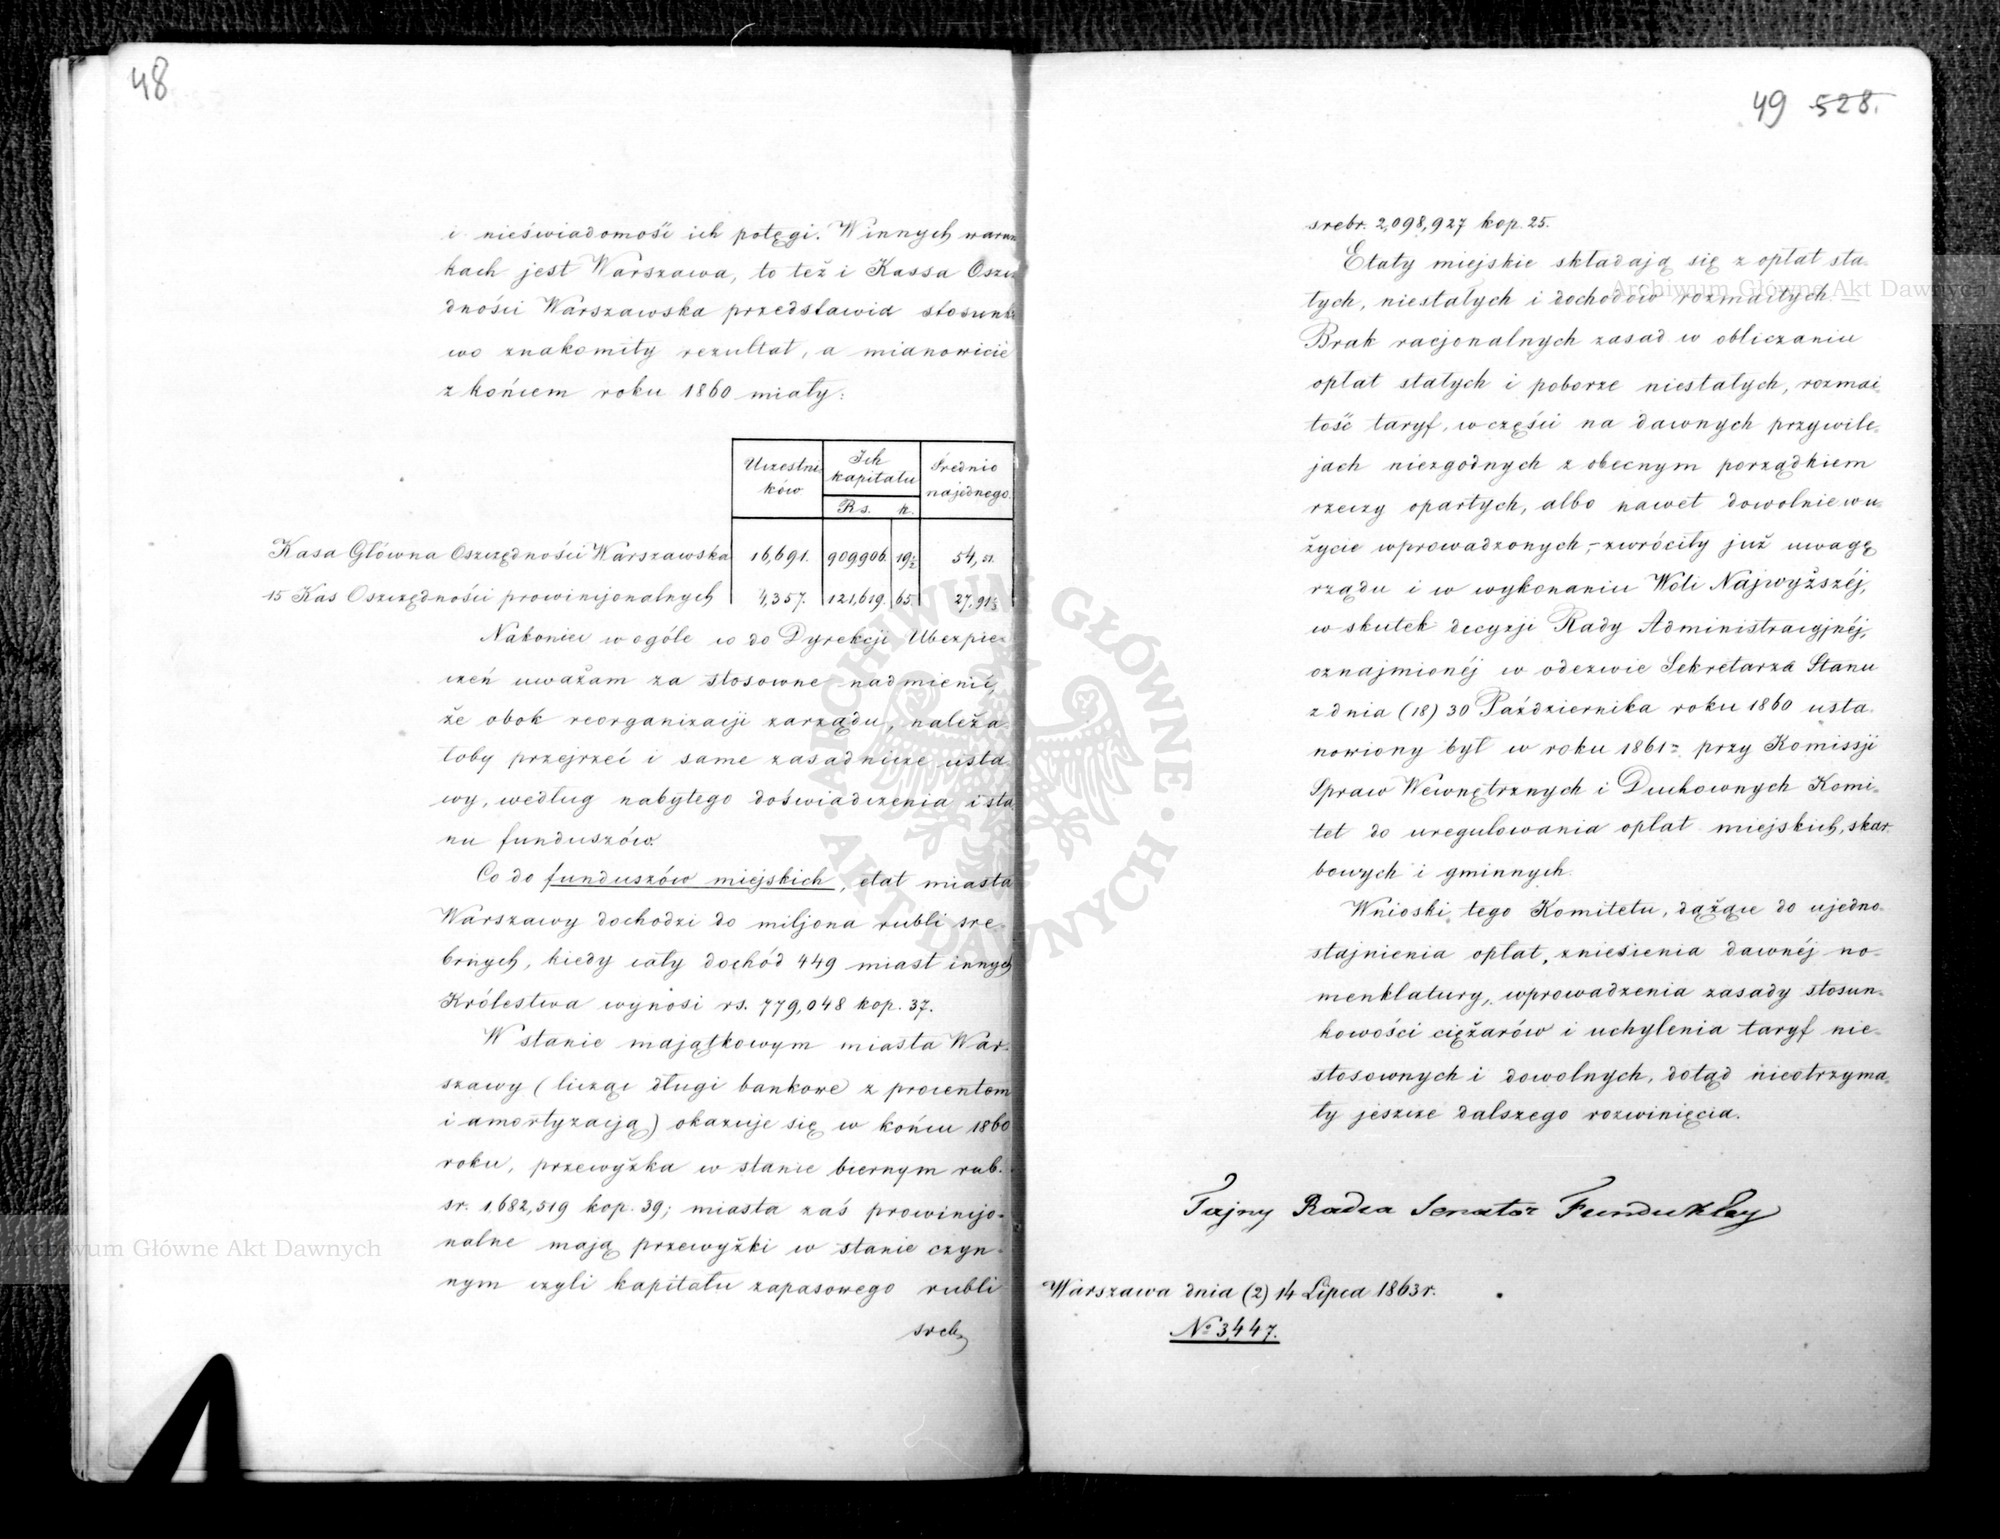 48
i nieświadomość ich potęgi. W innych warun
kach jest Warszawa, to też i Kassa Oszczę
dności Warszawska przedstawia stosunko
wo znakomity rezultat, a mianowicie
z końcem roku 1860 miały:
Uczestni
ków
Ich
kapitału
Rs. k.
Średnio
na jednego.
Kasa Główna Oszczędności Warszawska 16,691. 909906. 19½ 54,51.
15 Kas Oszczędności prowincjonalnych 4,357. 121,619. 65. 27,91½
Nakoniec w ogóle co do Dyrekcji Ubezpie-
czeń uważam za stosowne nadmienić,
że obok reorganizacji zarządu, należa-
łoby przejrzeć i same zasadnicze usta-
wy, według nabytego doświadczenia i sta
nu funduszów.
Co do funduszów miejskich, etat miasta
Warszawy dochodzi do miljona rubli sre-
brnych, kiedy cały dochód 449 miast innych
Królestwa wynosi rs. 779,048 kop. 37.
W stanie majątkowym miasta War-
szawy (licząc długi bankowe z procentem
i amortyzacją) okazuje się w końcu 1860
roku, przewyżka w stanie biernym rub.
sr. 1,682,519 kop. 39; miasta zaś prowincjo-
nalne mają przewyżki w stanie czyn-
nym czyli kapitału zapasowego rubli
sreb.
49 528.
srebr. 2,098,927 kop. 25.
Etaty miejskie składają się z opłat sta-
łych, niestałych i dochodów rozmaitych. —
Brak racjonalnych zasad w obliczaniu
opłat stałych i poborze niestałych, rozmai-
tość taryf, w części na dawnych przywile-
jach niezgodnych z obecnym porządkiem
rzeczy opartych, albo nawet dowolnie w u-
życie wprowadzonych, - zwróciły już uwagę
rządu i w wykonaniu Woli Najwyższéj,
w skutek decyzji Rady Administracyjnéj,
oznajmionéj w odezwie Sekretarza Stanu
z dnia (18) 30 Października roku 1860 usta-
nowiony był w roku 1861 przy Komissji
Spraw Wewnętrznych i Duchownych Komi-
tet do uregulowania opłat miejskich, skar-
bowych i gminnych.
Wnioski tego Komitetu, dążące do ujedno-
stajnienia opłat, zniesienia dawnéj no-
menklatury, wprowadzenia zasady stosun-
kowości ciężarów i uchylenia taryf nie-
stosownych i dowolnych, dotąd nieotrzyma-
ły jeszcze dalszego rozwinięcia.
Tajny Radca Senator Fundukley
Warszawa dnia (2) 14 Lipca 1863 r.
№ 3,447.
Archiwum Główne Akt Dawnych
Archiwum Główne Akt Dawnych
ARCHIWUM GŁÓWNE · AKT DAWNYCH ·